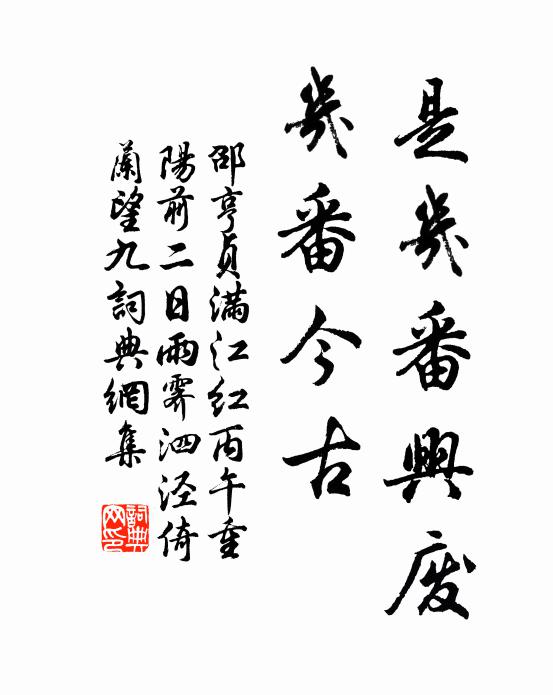 是幾番興废
幾番今古
邵亨貞满江红丙午重
陽前二日雨霽泗泾倚
蘭望九詞典網集
詞典
网印